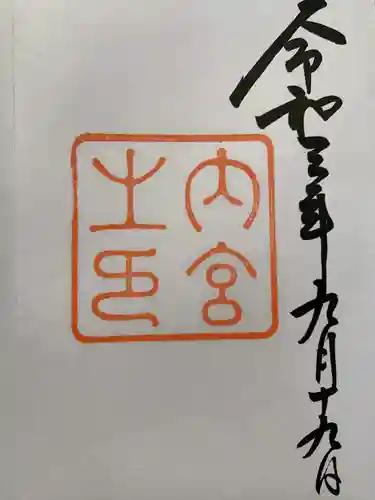 令和三年九月十九日
内宮
之印